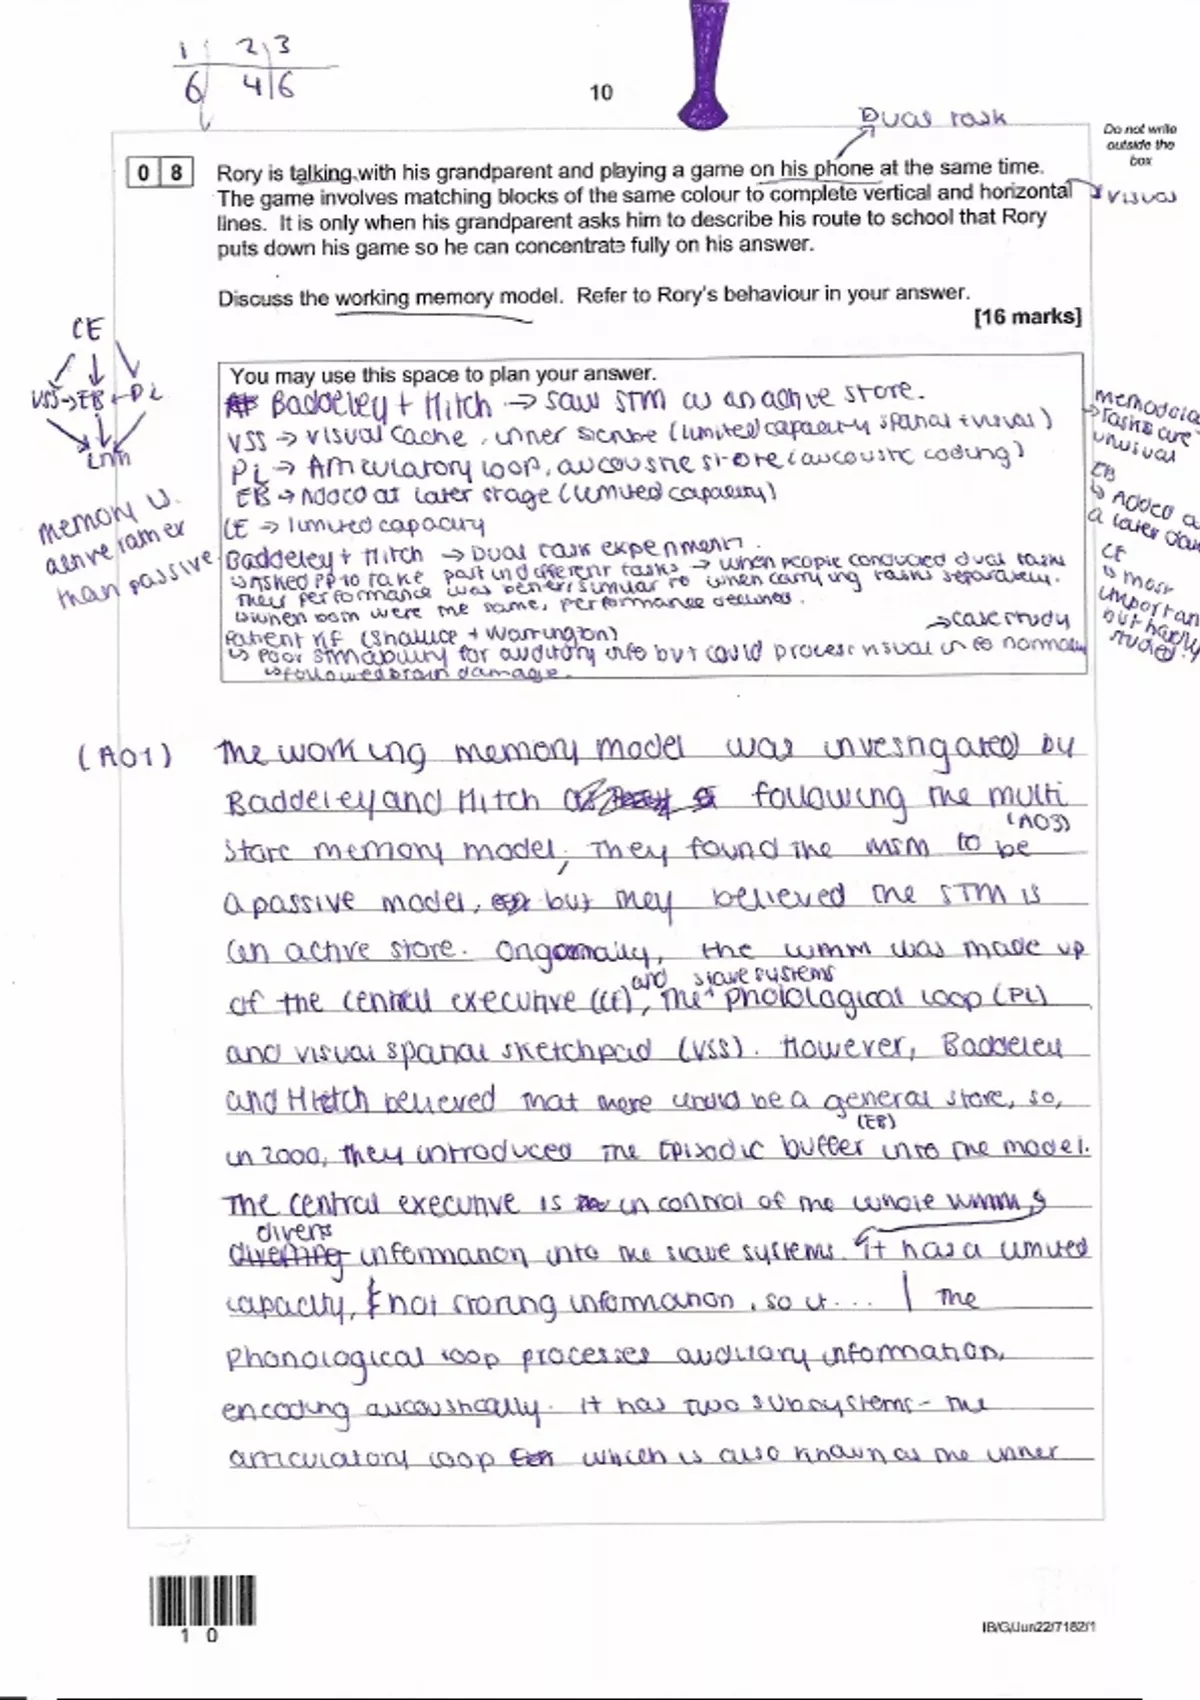 1 2 3
6 4 6
10
Dual task
Do not write
outside the
box
0 8
Rory is talking with his grandparent and playing a game on his phone at the same time.
The game involves matching blocks of the same colour to complete vertical and horizontal
visual
lines. It is only when his grandparent asks him to describe his route to school that Rory
puts down his game so he can concentrate fully on his answer.
Discuss the working memory model. Refer to Rory's behaviour in your answer.
[16 marks]
CE
VSS → EB ← PL
LTM
memory is
active rather
than passive
You may use this space to plan your answer.
Baddeley + Hitch → saw STM as an active store.
VSS → visual cache, inner scribe (limited capacity spatial + visual)
PL → Articulatory loop, aucoustic store (aucoustic coding)
EB → Added at later stage (limited capacity)
CE → limited capacity
Baddeley + Hitch → Dual task experiment.
↳ Asked PP to take part in different tasks → when people conducted dual tasks
their performance was better/similar to when carrying tasks seperately.
↳ when both were the same, performance declined.
→ case study
Patient KF (Shallice + Warrington)
↳ Poor STM ability for auditory info but could process visual info normally
↳ followed brain damage.
→ Tasks are
unusual
EB
↳ Added at
a later
CE
↳ most
important
but hardly
studied
(AO1)
The working memory model was investigated by
Baddeley and Hitch following the multi
store memory model, They found the MSM to be
(AO3)
a passive model, but they believed the STM is
an active store. Ongomaily, the WMM was made up
and slave systems
of the central executive (CE), the pholological loop (PL)
and visual spatial sketchpad (VSS). However, Baddeley
and Hitch believed that there should be a general store, so,
(EB)
in 2000, they introduced the Episodic buffer into the model.
The central executive is in control of the whole WMM,
diverts
diverting information into the slave systems. It has a limited
capacity, & not storing information, so it... | The
Phonological loop processes auditory information,
encoding aucoustically. It has two subsystems - the
articulatory loop which is also known as the inner
1 0
IB/G/Jun22/7182/1